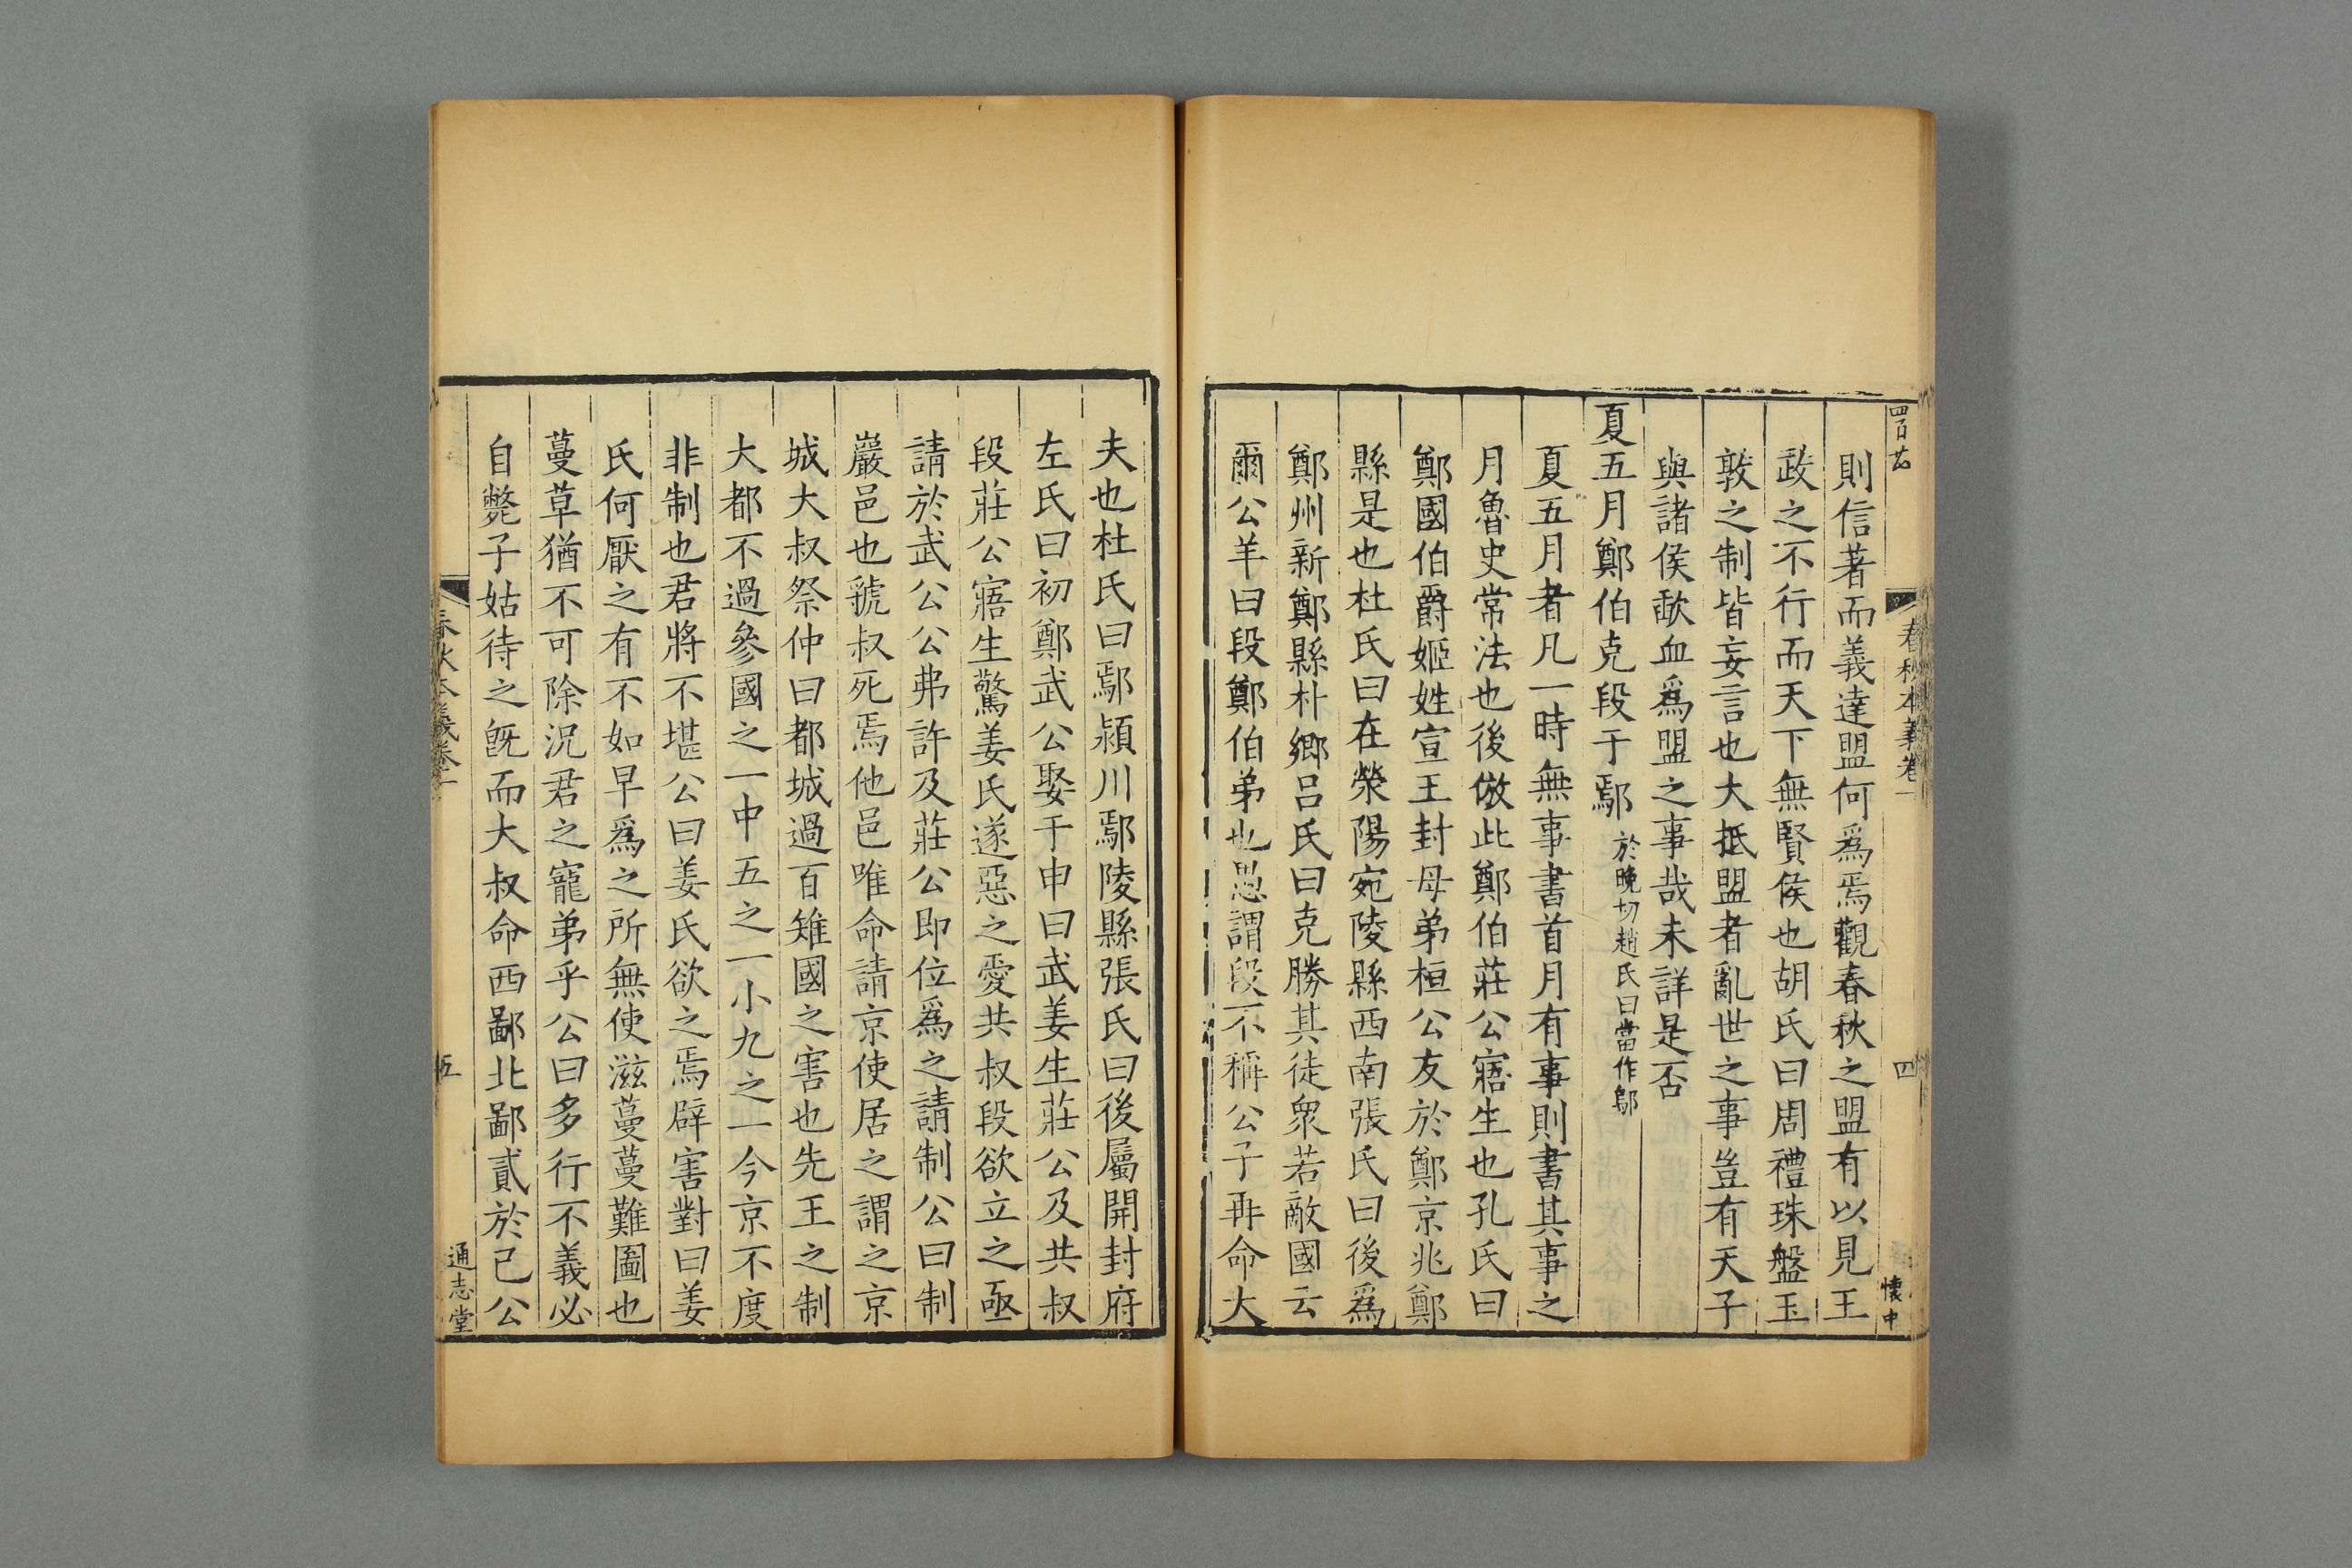 四百廿
春秋本義卷一
四
懐中
則信著而義達盟何爲焉觀春秋之盟有以見王
政之不行而天下無賢侯也胡氏曰周禮珠盤玉
敦之制皆妄言也大抵盟者亂世之事豈有天子
與諸侯歃血爲盟之事哉未詳是否
夏五月鄭伯克段于鄢於晚切趙氏曰當作鄔
夏五月者凡一時無事書首月有事則書其事之
月魯史常法也後倣此鄭伯莊公寤生也孔氏曰
鄭國伯爵姬姓宣王封母弟桓公友於鄭京兆鄭
縣是也杜氏曰在滎陽宛陵縣西南張氏曰後爲
鄭州新鄭縣朴鄉呂氏曰克勝其徒衆若敵國云
爾公羊曰段鄭伯弟也愚謂段不稱公子再命大
夫也杜氏曰鄢潁川鄢陵縣張氏曰後屬開封府
左氏曰初鄭武公娶于申曰武姜生莊公及共叔
段莊公寤生驚姜氏遂惡之愛共叔段欲立之亟
請於武公公弗許及莊公即位爲之請制公曰制
巖邑也虢叔死焉他邑唯命請京使居之謂之京
城大叔祭仲曰都城過百雉國之害也先王之制
大都不過參國之一中五之一小九之一今京不度
非制也君將不堪公曰姜氏欲之焉辟害對曰姜
氏何厭之有不如早爲之所無使滋蔓蔓難圖也
蔓草猶不可除況君之寵弟乎公曰多行不義必
自斃子姑待之既而大叔命西鄙北鄙貳於己公
春秋本義卷一
五
通志堂